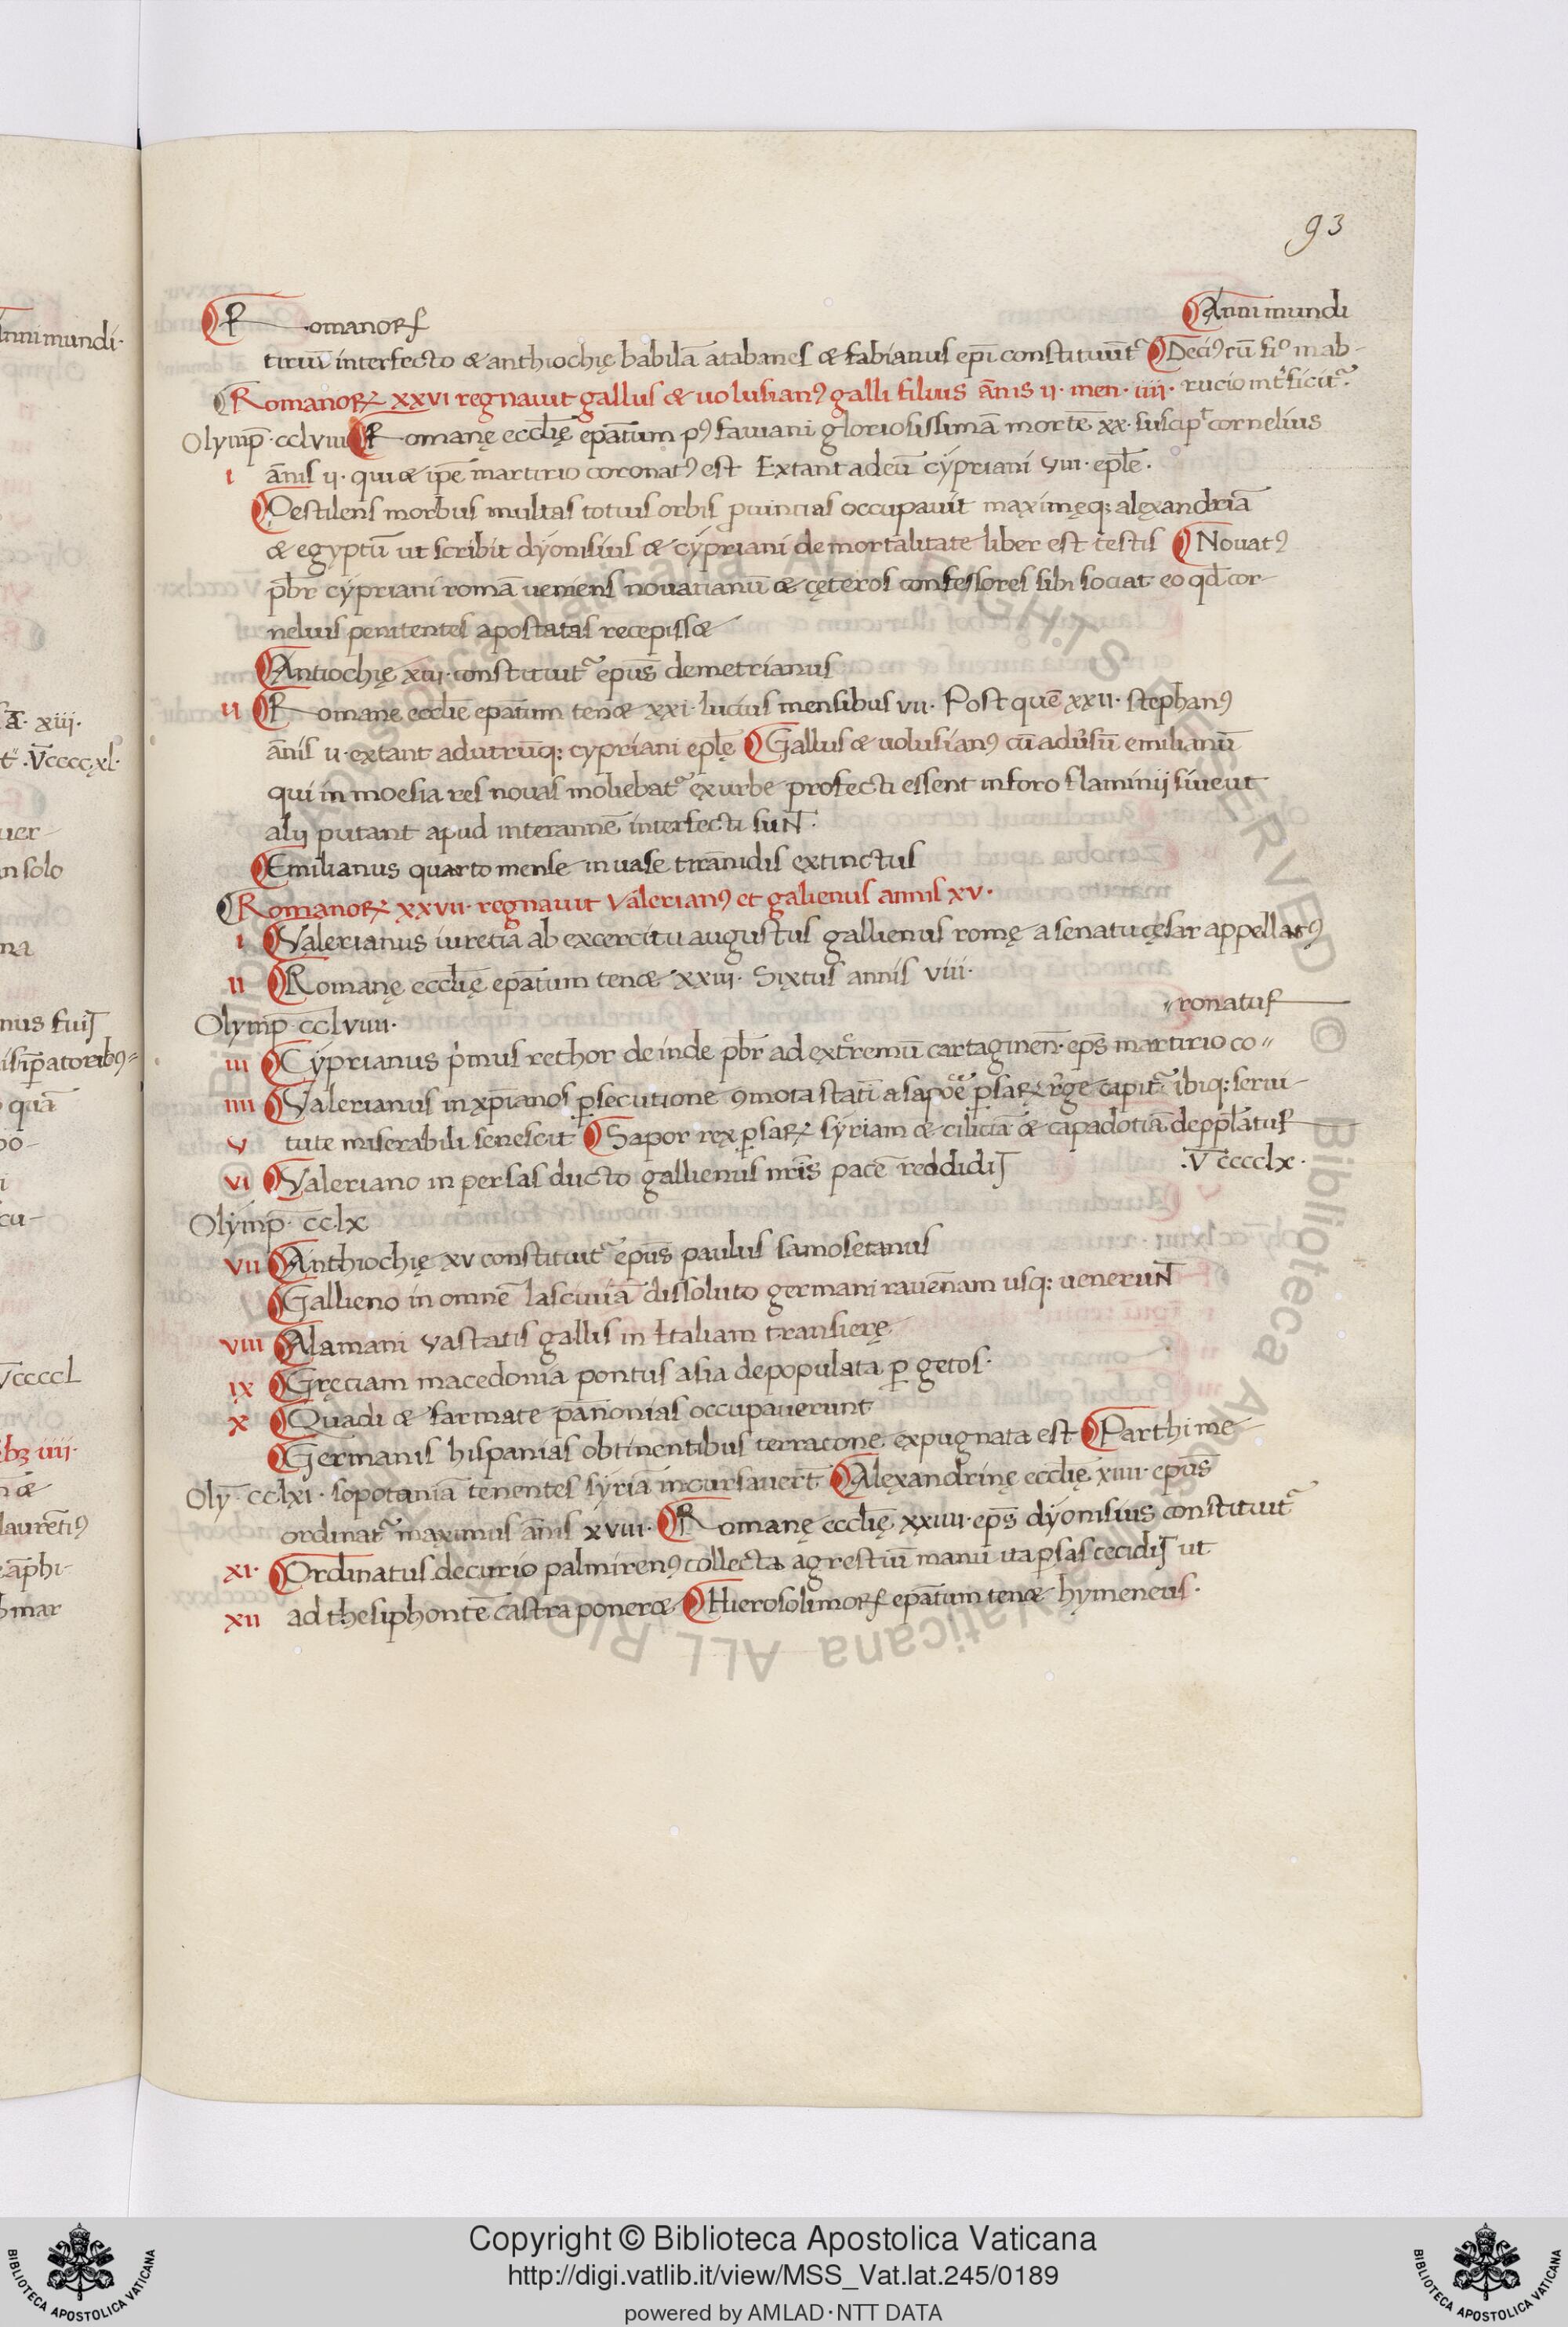 93
Romanoꝝ Anni mundi
tiriū interfecto & anthiochię babilā atabanes & fabianus ep̄i constituūt᷑ Deciꝰ cū fi° in ab-
Romanoꝝ xxvi regnauit gallus & uolusianꝰ galli filius ānis ii· men· iiii· rucio int̓ficit᷑
Olymp̄ · cclviii Romanę eccl̄ię ep̄atum pꝰ fauiani gloriosissimā mortē xx· suscip̓t cornelius
i ānis ii· qui & ip̄e martirio coronatꝰ est Extant ad eū cypriani viii· ep̄le·
Pestilens morbus multas totius orbis ꝓuintias occupauit maximęq; alęxandriā
& egyptū ut scribit dyonisius & cypriani de mortalitate liber est testis Nouatꝰ
p̄br cypriani romā ueniens nouatianū & cęteros confessores sibi sociat eo qd̄ cor-
nelius penitentes apostatas recepiss&
Antiochię xiii· constituit᷑ ep̄us demetrianus
ii Romane eccl̄ie ep̄atum ten& xxi· lucius mensibus vii· Post quē xxii· stephanꝰ
ānis ii· extant ad utrūq; cypriani ep̄lę Gallus & uolusianꝰ cū adu̓sū emilianū
qui in moesia res nouas moliebat᷑ ex urbe profecti essent in foro flaminij siue ut
alij putant apud interannē interfecti suN̄T·
Emilianus quarto mense inuase tirānidis extinctus
Romanoꝝ xxvii· regnauit Valerianꝰ et galienus annis xv·
i Valerianus iu retia ab excercitu augustus gallienus romę a senatu cęsar appellatꝰ
ii Romanę eccl̄ię ep̄atum ten& xxiii· Sixtus annis viii·
Olymp̄ cclviiii· ronatus
iii Cyprianus p̓mus rethor deinde p̄br ad ext̓remū cartaginen̄· ep̄s martirio co
iiii Valerianus in xp̄ianos ꝑsecutione ꝯmota statī a sapore ꝑsaꝝ rege capit᷑ ibiq; serui-
v tute miserabili senescit Sapor rex ꝑsaꝝ syriam & ciliciā & capadotiā depp̄latus
vi Valeriano in persas ducto gallienus nr̄is pacē reddidiT ·V̄cccclx·
Olymp̄· cclx
vii Anthiochię xv constituit᷑ ep̄us paulus samosetanus
Gallieno in omnē lasciuiā dissoluto germani rauēnam usq; uenerun̄T
viii Alamani vastatis gallis in Italiam transierę
ix Gręciam macedonia pontus asia depopulata ꝑ getos·
x Quadi & sarmate pānonias occupauerunt
Germanis hispanias obtinentibus terracone expugnata est Parthi me-
Oly̅· cclxi· sopotaniā tenentes syriā incursauer̄t Alęxandrinę eccl̄ię xiiii· ep̄us
ordinat᷑ maximus ānis xviii· Romanę eccl̄ię xxiiii· ep̄s dyonisius constituit᷑
xi· Ordinatus decurio palmirenꝰ collecta agrestiū manu ita ꝑsas cecidiT ut
xii ad thesiphontē castra poner& Hierosolimoꝝ ep̄atum ten& hymeneus·
Copyright © Biblioteca Apostolica Vaticana
http://digi.vatlib.it/view/MSS_Vat.lat.245/0189
powered by AMLAD·NTT DATA
BIBLIOTECA APOSTOLICA VATICANA
BIBLIOTECA APOSTOLICA VATICANA